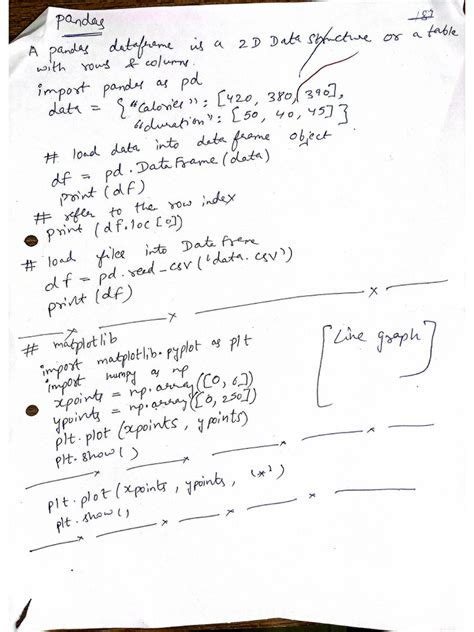 187
pandas
A pandas dataframe is a 2D Data structure or a table
with rows & columns.
import pandas as pd
data = { "Calories" : [420, 380, 390],
"duration" : [50, 40, 45] }
# load data into data frame object
df = pd.DataFrame(data)
print (df)
# refer to the row index
print (df.loc [0])
# load files into Data Frame
df = pd.read_csv('data.csv')
print (df)
# matplotlib
import matplotlib.pyplot as plt
import numpy as np
xpoints = np.array([0, 6])
ypoints = np.array([0, 250])
plt.plot (xpoints, ypoints)
plt.show( )
[Line graph]
plt.plot(xpoints, ypoints, '*')
plt.show()